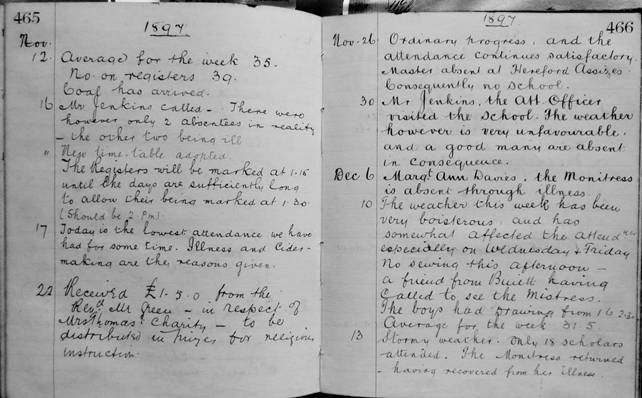 465
1897
Nov.
12 Average for the week 35.
No. on registers 39.
Coal has arrived.
16 Mr Jenkins called. There were
however only 2 absentees in reality
– the other two being ill
" New time-table adopted.
The Registers will be marked at 1.15
until the days are sufficiently long
to allow their being marked at 1.30
(Should be 2 p.m.)
17 Today is the lowest attendance we have
had for some time. Illness and Cider-
making are the reasons given.
22 Received £1.5.0 from the
Revd Mr Green – in respect of
Mrs Thomas' Charity – to be
distributed in prizes for religious
instruction.
1897
466
Nov. 26 Ordinary progress, and the
attendance continues satisfactory.
Master absent at Hereford Assizes
Consequently no school.
30 Mr Jenkins, the Att. Officer
visited the School. The weather
however is very unfavourable,
and a good many are absent
in consequence.
Dec 6 Margt Ann Davies, the Monitress
is absent through illness.
10 The weather this week has been
very boisterous, and has
somewhat affected the Attendnce
especially on Wednesday & Friday
No sewing this afternoon –
a friend from Builth having
called to see the Mistress.
The boys had Drawing from 1 to 2.30
Average for the week 31.5
13 Stormy weather. Only 18 scholars
attended. The Monitress returned
– having recovered from her illness.